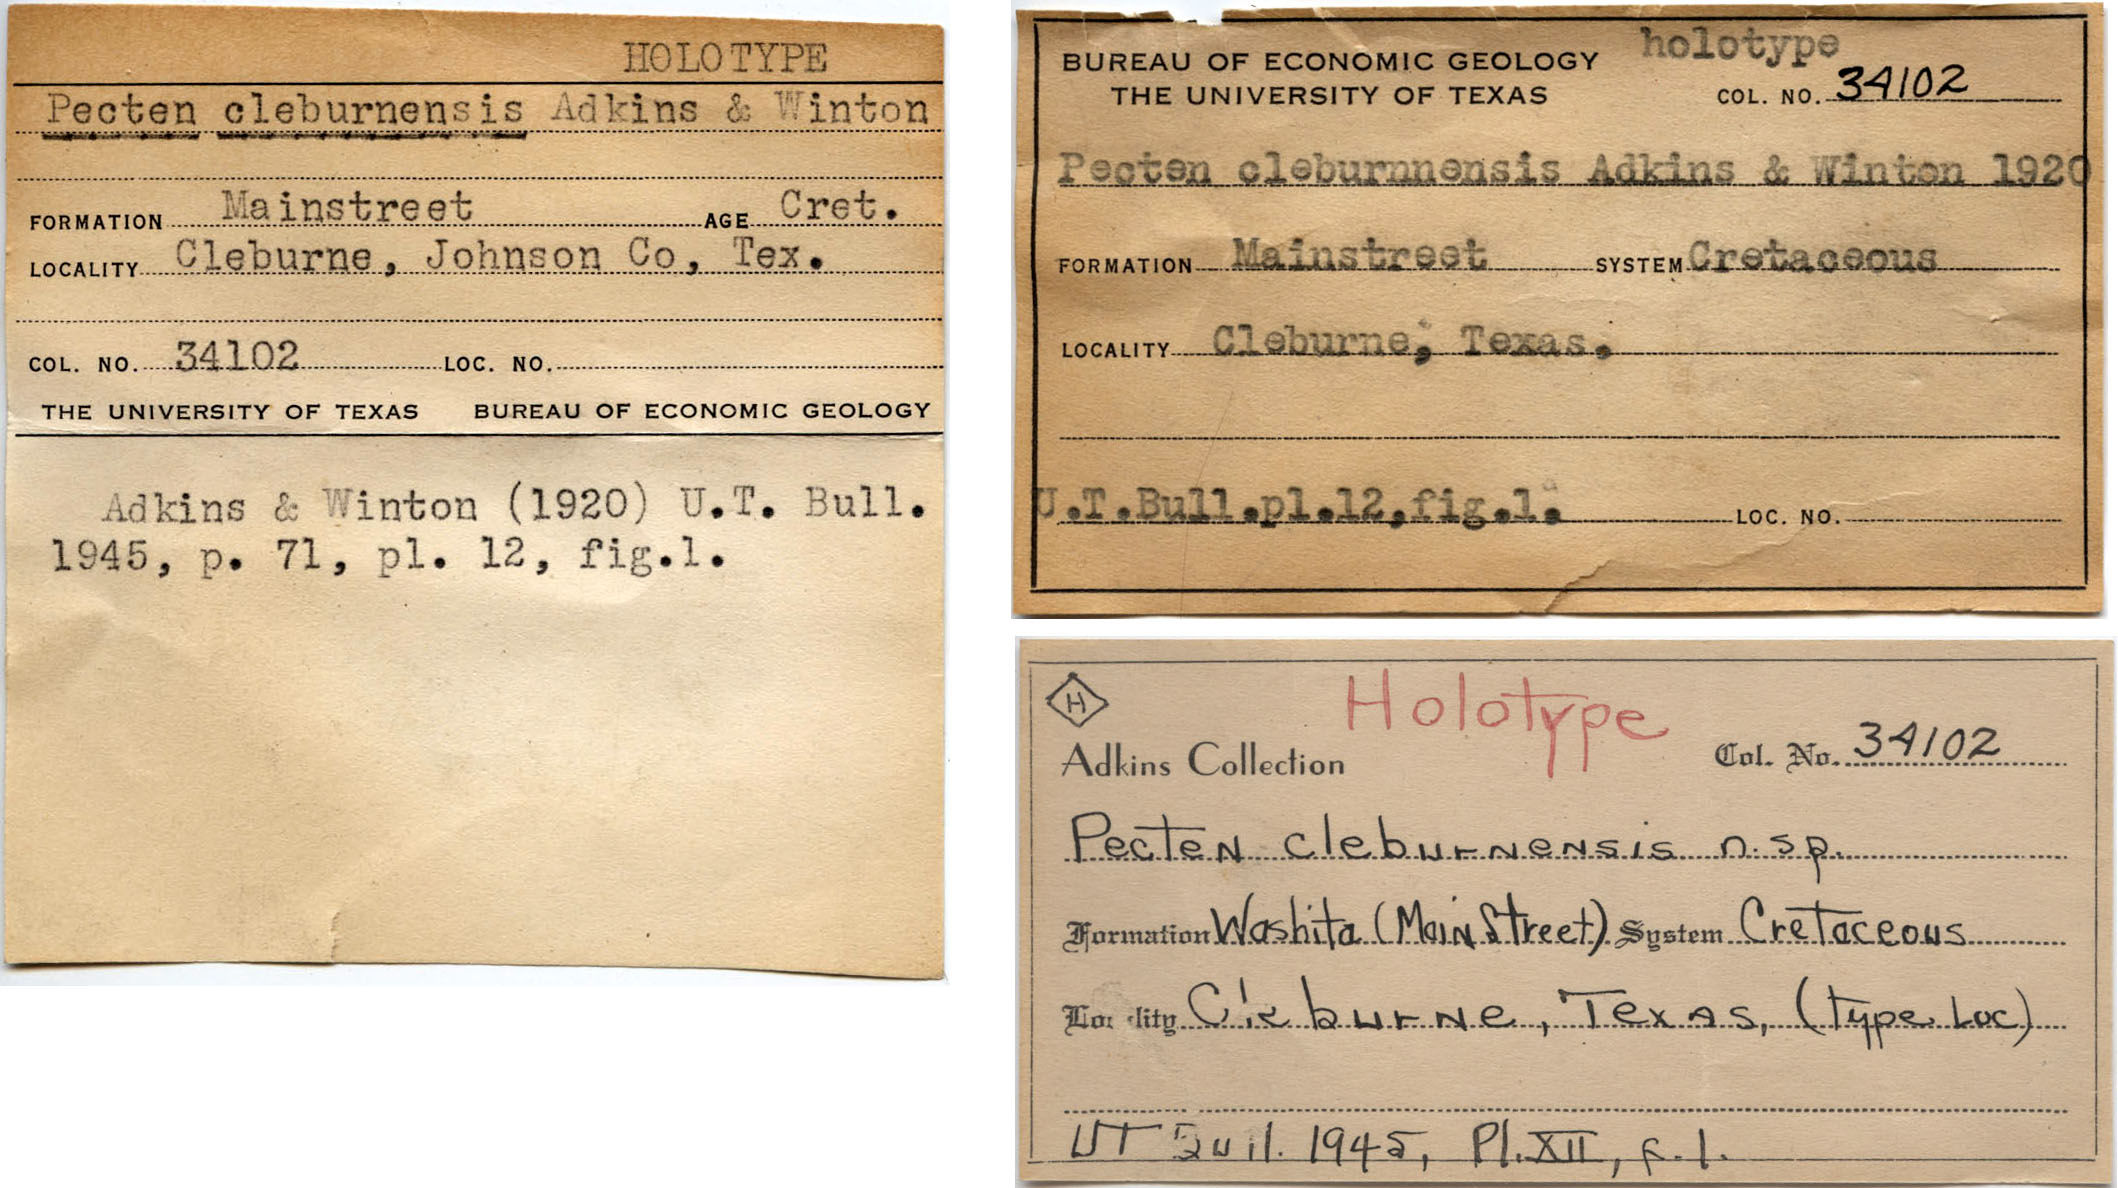 HOLOTYPE
Pecten cleburnensis Adkins & Winton
FORMATION Mainstreet AGE Cret.
LOCALITY Cleburne, Johnson Co, Tex.
COL. NO. 34102 LOC. NO.
THE UNIVERSITY OF TEXAS BUREAU OF ECONOMIC GEOLOGY
Adkins & Winton (1920) U.T. Bull.
1945, p. 71, pl. 12, fig.1.
holotype
BUREAU OF ECONOMIC GEOLOGY
THE UNIVERSITY OF TEXAS COL. NO. 34102
Pecten cleburnnensis Adkins & Winton 1920
FORMATION Mainstreet SYSTEM Cretaceous
LOCALITY Cleburne, Texas.
U.T.Bull.pl.12,fig.1. LOC. NO.
H
Holotype
Adkins Collection Col. No. 34102
Pecten cleburnensis n.sp.
Formation Washita (Main Street) System Cretaceous
Locality Cleburne, Texas, (Type Loc)
UT Bull. 1945, Pl. XII, f. 1.